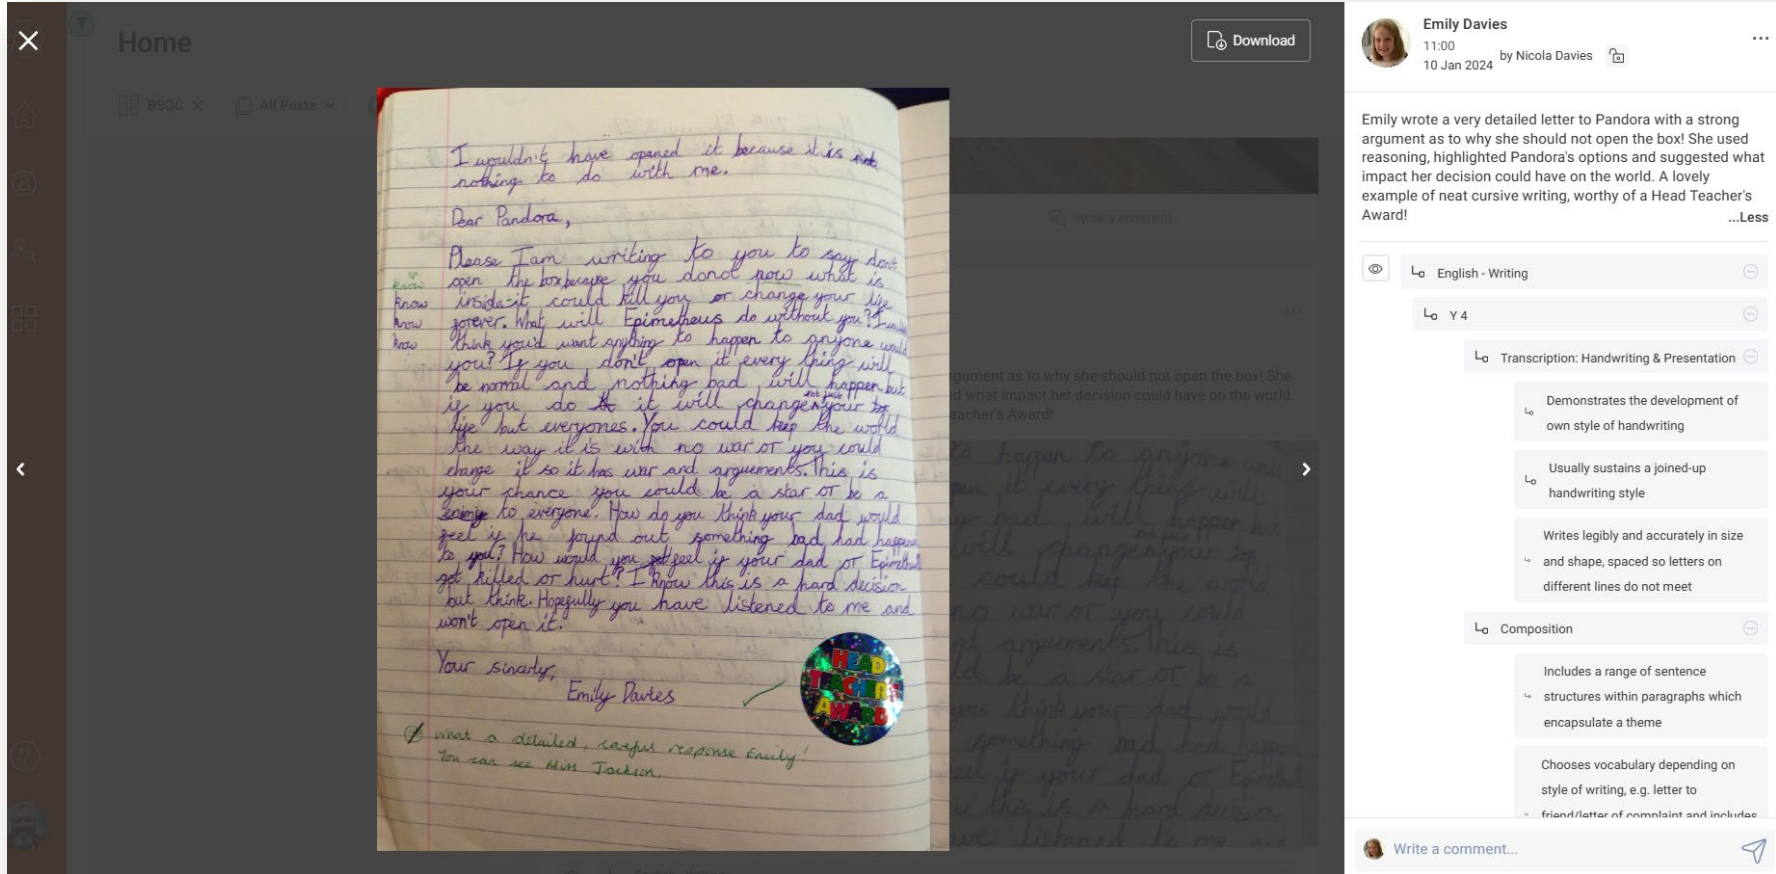 Home
BSQC
All Posts
Download
I wouldn't have opened it because it is not
nothing to do with me.
Dear Pandora,
Please I am writing to you to say dont
open the box because you donot now what is
sp
know
know
know
know
inside it could kill you or change your life
forever. What will Epimetheus do without you? I
think you'd want anything to happen to anyone would
you? If you don't open it every thing will
be normal and nothing bad will happen but
if you do it will change not just your
life but everyones. You could keep the world
the way it is with no war or you could
change it so it has war and arguements. This is
your chance you could be a star or be a
enemy to everyone. How do you think your dad would
feel if he found out something bad had happened
to you? How would you feel if your dad or Epimetheus
got killed or hurt? I know this is a hard decision
but think. Hopefully you have listened to me and
won't open it.
Your sincerly,
Emily Davies
HEAD
TEACHER'S
AWARD
What a detailed, careful response Emily!
You can see Miss Jackson.
Write a comment...
rgument as to why she should not open the box! She
d what impact her decision could have on the world.
eacher's Award!
Emily Davies
11:00
10 Jan 2024
by Nicola Davies
Emily wrote a very detailed letter to Pandora with a strong
argument as to why she should not open the box! She used
reasoning, highlighted Pandora's options and suggested what
impact her decision could have on the world. A lovely
example of neat cursive writing, worthy of a Head Teacher's
Award!
...Less
English - Writing
Y 4
Transcription: Handwriting & Presentation
Demonstrates the development of
own style of handwriting
Usually sustains a joined-up
handwriting style
Writes legibly and accurately in size
and shape, spaced so letters on
different lines do not meet
Composition
Includes a range of sentence
structures within paragraphs which
encapsulate a theme
Chooses vocabulary depending on
style of writing, e.g. letter to
friend/letter of complaint and includes
Write a comment...